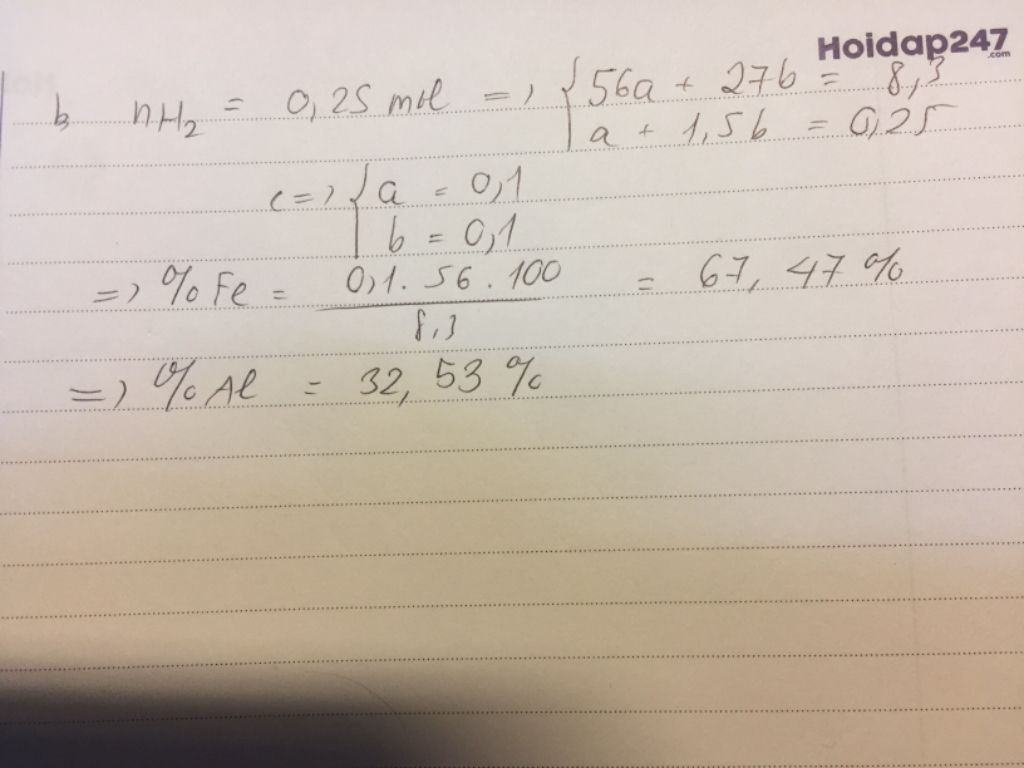 Hoidap247
.com
b, nH2 = 0,25 mol => { 56a + 27b = 8,3
a + 1,5b = 0,25
<=> { a = 0,1
b = 0,1
=> % Fe = 0,1 . 56 . 100 = 67,47 %
8,3
=> % Al = 32,53 %